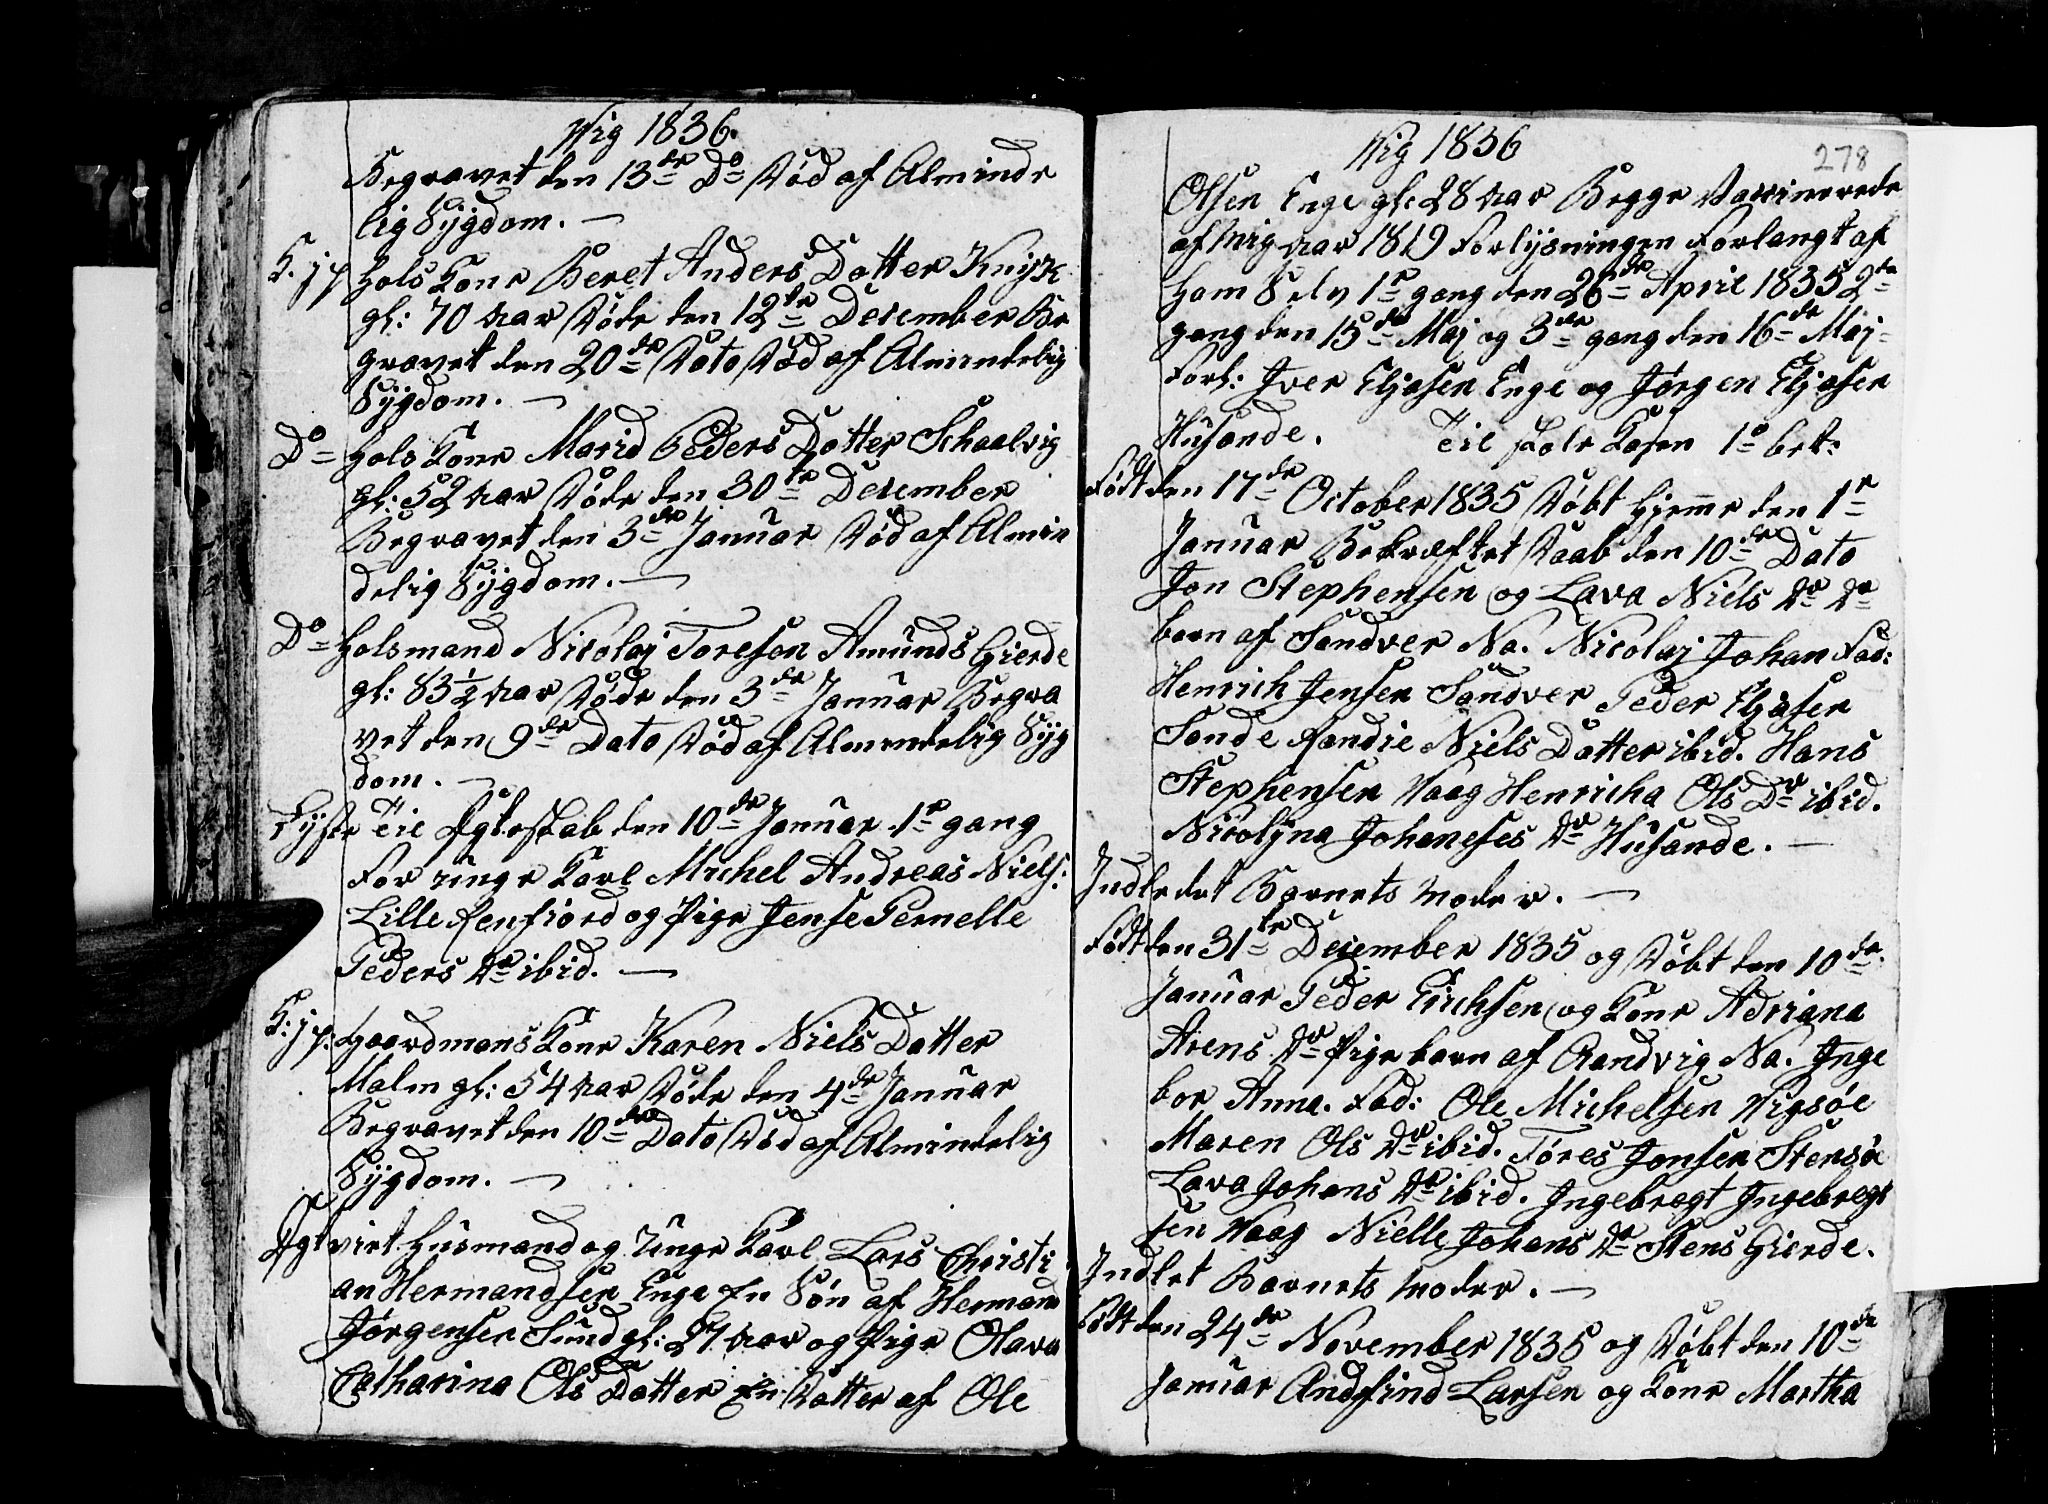 Wig 1836.
Begravet den 13de Do Død af Alminde
lig Sÿgdom. —
K: j p Holskone Beret Anders Datter Knÿk
gl: 70 aar Døde den 12te December Be
gravet den 20de Dato Død af Almindelig
Sÿgdom. —
Do Holskone Marid Peders Datter Schaalvig
gl: 52 aar Døde den 30te December
Begravet den 3de Januar Død af Almin
delig Sÿgdom. —
Do Holsmand Nicolaj Toresen Amunds Gierde
gl: 83½ aar Døde den 3de Januar Begra
vet den 9de Dato Død af Almindelig Sÿg
dom. —
Lÿste Til Ægteskab den 10de Januar 1e gang
For unge Karl Michel Andreas Niels:
Lille Renfiord og Pige Jense Pernelle
Peders Dr ibid. —
K: j p: Gaardmans Kone Karen Niels Datter
Malm gl: 54 aar Døde den 4de Januar
Begravet den 10de Dato Død af Almindelig
Sÿgdom. —
Ægtviet Husmand og unge Karl Lars Christi
an Hermandsen Enge En Søn af Herman
Jørgensen Sund gl: 27 aar og Pige Olava
Catharina Ols Datter En Datter af Ole
Wig 1836
278
Olsen Enge gl: 28 aar Begge Vaccinerede
af Mig aar 1819 Forlysningen Forlangt af
Ham Selv 1e gang den 26de April 1835 2de
gang den 15de Maj og 3de gang den 16de Maj
Forl: Iver Eljasen Enge og Jørgen Eljasen
Husande. Til Skole Kasen 1o bet:
Født den 17de October 1835 Døbt Hjeme den 1e
Januar Bekræftet Daab den 10de Dato
Jon Stephensen og Lava Niels Dr Dr
barn af Sandver Na. Nicolaj Johan Fad:
Henrich Jensen Sandver Peder Eljasen
Sande Randie Niels Datter ibid. Hans
Stephensen Waag Henricha Ols Dr ibid.
Nicolÿna Johaneses Dr Husande. —
Indledet Barnets Moder. —
Født den 31te December 1835 og Døbt den 10de
Januar Peder Erichsen og Kone Adriana
Arens Dr Pige barn af Aandvig Na. Inge
bor Anna. Fad: Ole Michelsen Vigsøe
Maren Ols Dr ibid. Tøres Jonsen Stensøe
Lava Johans Dr ibid. Ingebregt Ingebregt
sen Waag Nielle Johans Dr Stens Gierde.
Indlet Barnets Moder. —
Født den 24de November 1835 og Døbt den 10de
Januar Andfind Larsen og Kone Martha